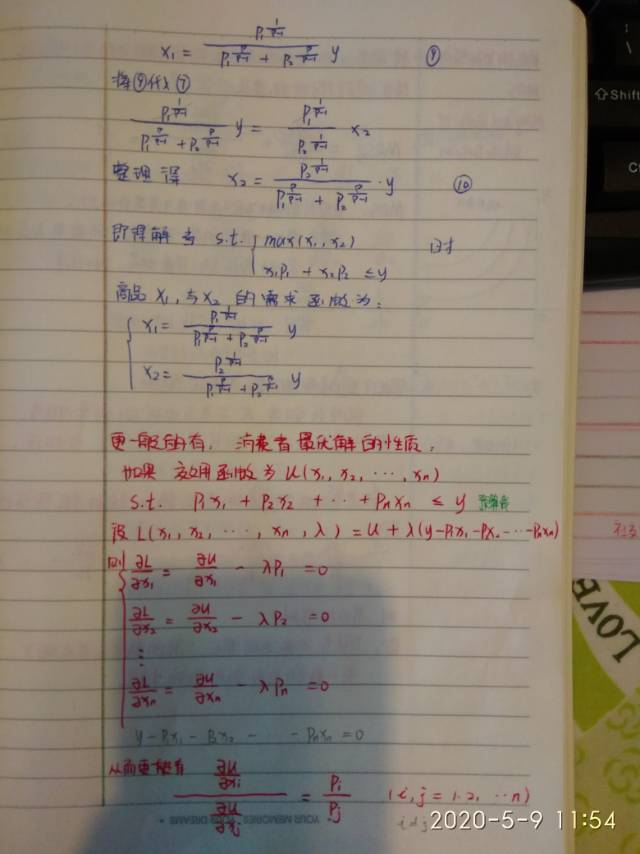 x₁ = \frac{P₁^{\frac{1}{ρ-1}}}{P₁^{\frac{ρ}{ρ-1}} + P₂^{\frac{ρ}{ρ-1}}} y ⑨
将⑨代入⑦
\frac{P₁^{\frac{1}{ρ-1}}}{P₁^{\frac{ρ}{ρ-1}} + P₂^{\frac{ρ}{ρ-1}}} y = \frac{P₁^{\frac{1}{ρ-1}}}{P₂^{\frac{1}{ρ-1}}} x₂
整理得 x₂ = \frac{P₂^{\frac{1}{ρ-1}}}{P₁^{\frac{ρ}{ρ-1}} + P₂^{\frac{ρ}{ρ-1}}} · y ⑩
即得解者 s.t. { max(x₁, x₂) 时
x₁P₁ + x₂P₂ ≤ y
商品 x₁ 与 x₂ 的需求函数为:
{ x₁ = \frac{P₁^{\frac{1}{ρ-1}}}{P₁^{\frac{ρ}{ρ-1}} + P₂^{\frac{ρ}{ρ-1}}} y
x₂ = \frac{P₂^{\frac{1}{ρ-1}}}{P₁^{\frac{ρ}{ρ-1}} + P₂^{\frac{ρ}{ρ-1}}} y
更一般的有, 消费者最优解的性质,
如果 效用函数为 u(x₁, x₂, ···, xn)
s.t. P₁x₁ + P₂x₂ + ··· + Pnxn ≤ y
设 L(x₁, x₂, ···, xn, λ) = u + λ(y-P₁x₁-P₂x₂-···-Pnxn)
则 { \frac{∂L}{∂x₁} = \frac{∂u}{∂x₁} - λP₁ = 0
\frac{∂L}{∂x₂} = \frac{∂u}{∂x₂} - λP₂ = 0
⋮
\frac{∂L}{∂xn} = \frac{∂u}{∂xn} - λPn = 0
y - P₁x₁ - P₂x₂ - ··· - Pnxn = 0
从而更能有 \frac{\frac{∂u}{∂xi}}{\frac{∂u}{∂xj}} = \frac{Pi}{Pj} (i, j = 1.2, ··· n)
YOUR MEMORIES DREAMS
2020-5-9 11:54
Shift
LOVE